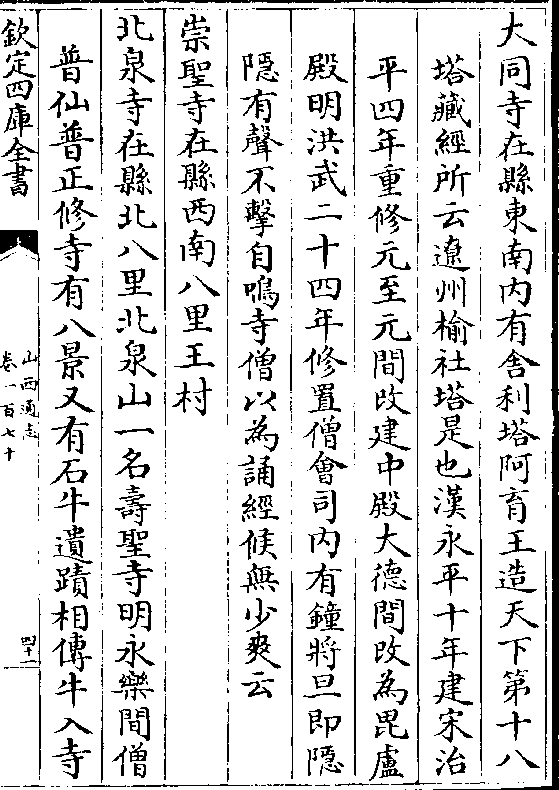 大同寺在縣東南内有舎利塔阿育王造天下第十八
塔藏經所云遼州榆社塔是也漢永平十年建宋治
平四年重修元至元間改建中殿大德間改為毘盧
殿明洪武二十四年修置僧會司内有鐘將旦即隠
隠有聲不擊自鳴寺僧以為誦經候無少爽云
崇聖寺在縣西南八里王村
北泉寺在縣北八里北泉山一名壽聖寺明永樂間僧
普仙普正修寺有八景又有石牛遺蹟相傳牛入寺
欽定四庫全書
山西通志
卷一百七十
四十一